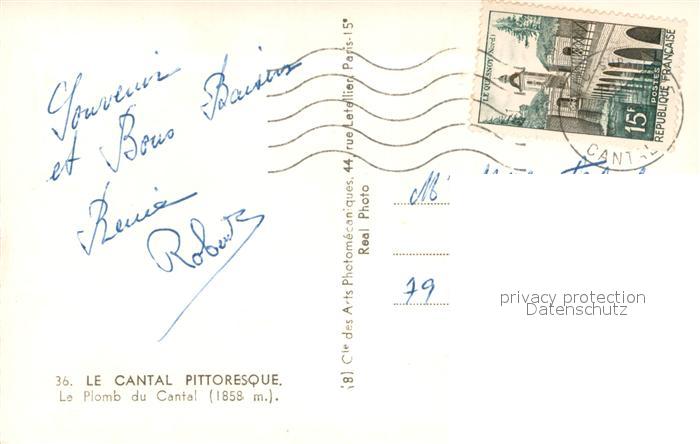 Souvenir
et Bons Baisers
Renée
Robert
36. LE CANTAL PITTORESQUE.
Le Plomb du Cantal (1858 m.).
(8) Cie des Arts Photomécaniques, 44, rue Letellier, Paris-15e
Real Photo
LE QUESNOY (Nord)
15F
POSTES
REPUBLIQUE FRANÇAISE
CANTAL
79
privacy protection
Datenschutz